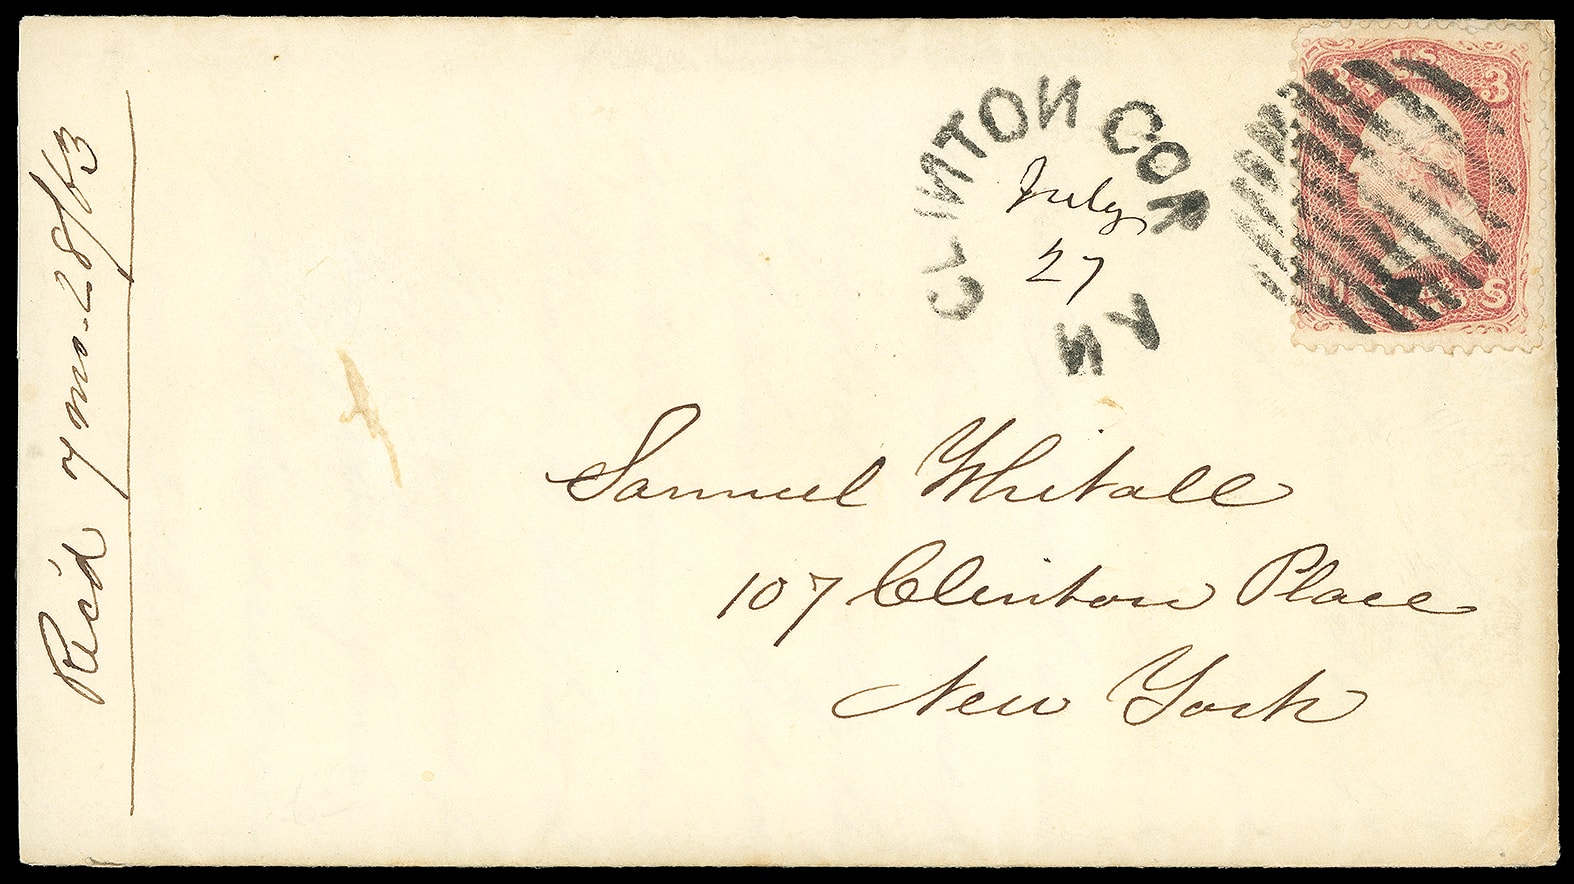 Rec'd 7 mo. 28/63
CLINTON COR
July
27
NY
U S
3 3
U S
Samuel Whitall
107 Clinton Place
New York